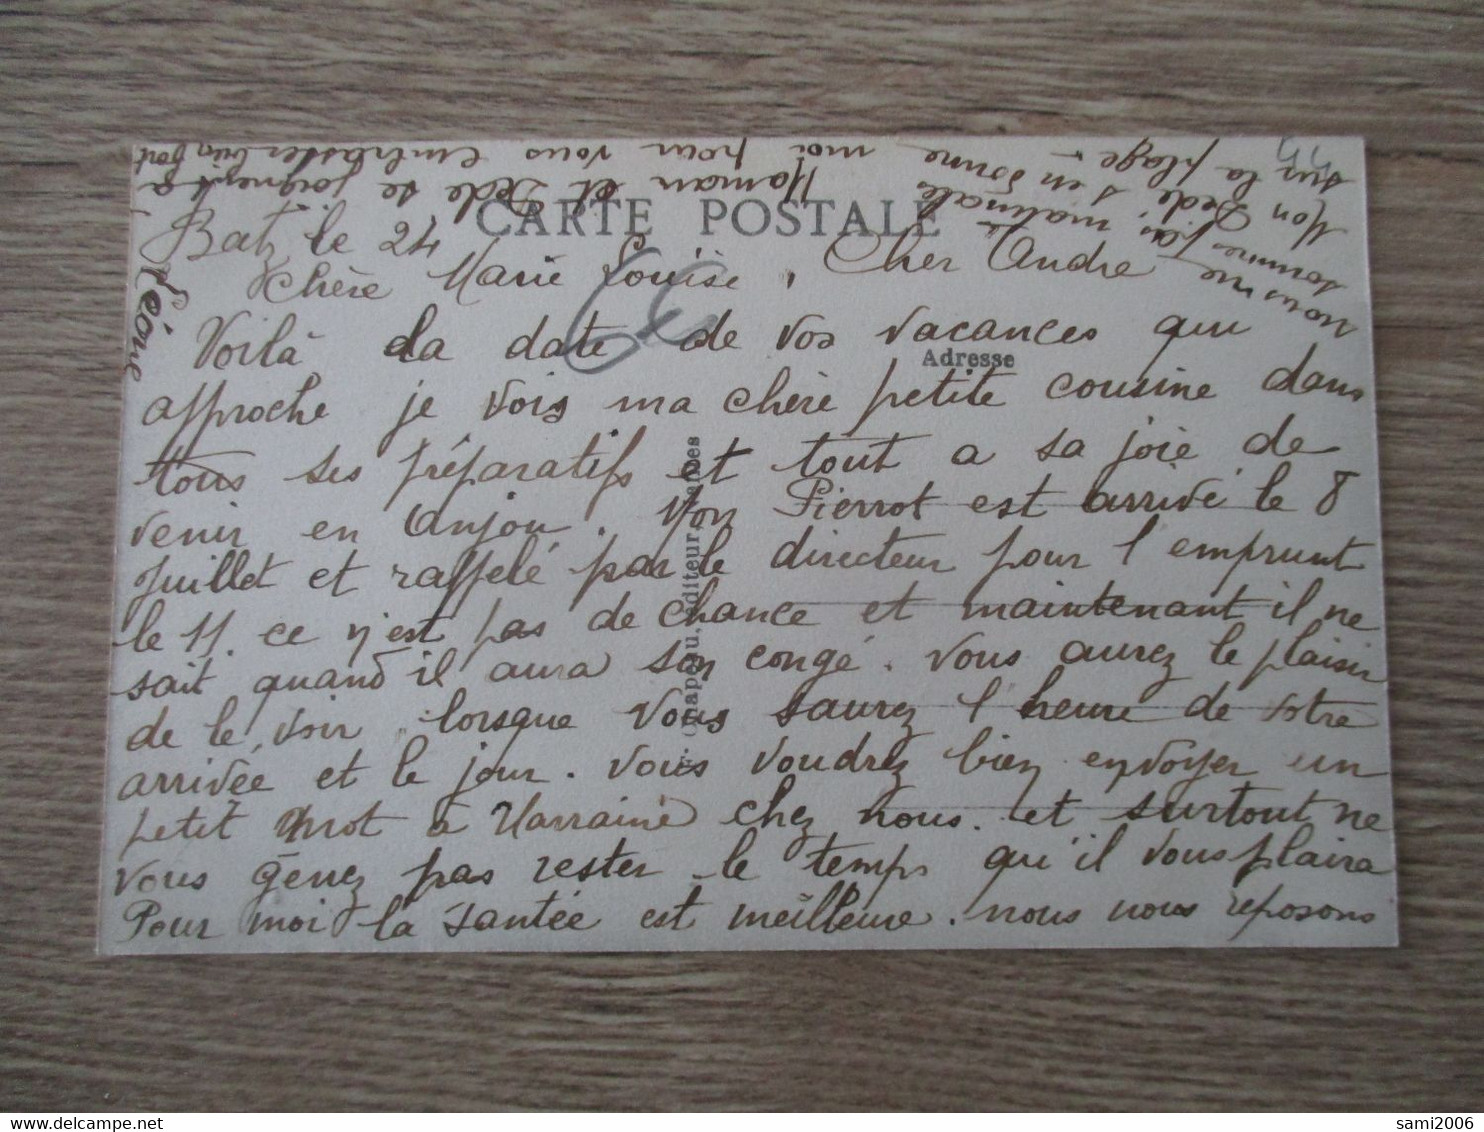 CARTE POSTALE
Adresse
Batz le 24
Chère Marie Louise, Cher André
Voilà la date de vos vacances qui
approche je vois ma chère petite cousine dans
tous ses préparatifs et tout a sa joie de
venir en Anjou. Mon Pierrot est arrivé le 8
Juillet et rappelé par le directeur pour l'emprunt
le 11. ce n'est pas de chance et maintenant il ne
sait quand il aura son congé. vous aurez le plaisir
de le voir lorsque vous saurez l'heure de votre
arrivée et le jour. vous voudrez bien envoyer un
petit mot à Varraine chez nous. et surtout ne
vous gênez pas rester le temps qu'il vous plaira
Pour moi la santée est meilleure. nous nous reposons
nous ne
sommes pas matinals
Mon Dédé s'en donne
sur la plage -
Maman et Dédé se joignent à
moi pour vous embrasser bien fort
Léone
éditeur